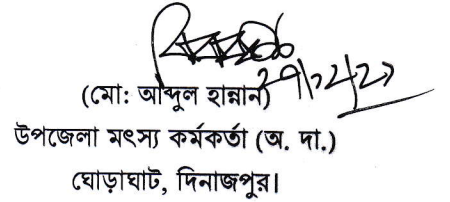 (মো: আব্দুল হান্নান)
উপজেলা মৎস্য কর্মকর্তা (অ. দা.)
ঘোড়াঘাট, দিনাজপুর।